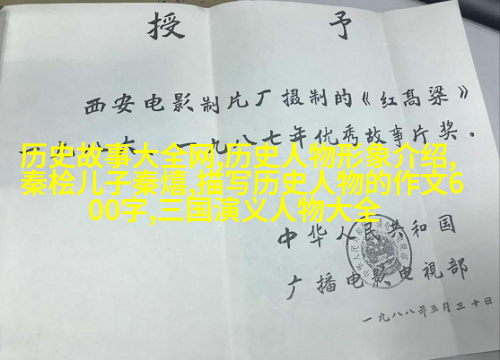 授 予
西安电影制片厂摄制的《红高粱》
一九八六 一九八七年优秀故事片奖。
历史故事大全网,历史人物形象介绍,
秦桧儿子秦熺,描写历史人物的作文6
00字,三国演义人物大全
中华人民共和国
广播电影电視部
一九八八年三月三十日